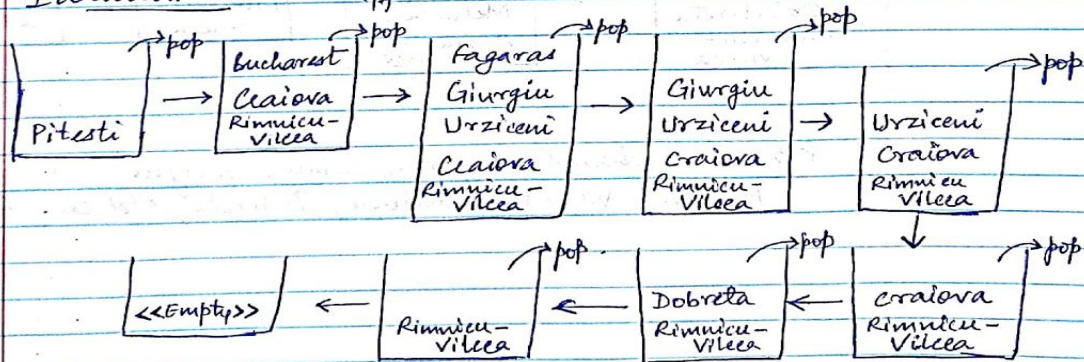 pop
Pitesti
pop
Bucharest
Ceaiova
Rimnicu-
Vilcea
pop
Fagaras
Giurgiu
Urziceni
Ceaiova
Rimnicu-
Vilcea
pop
Giurgiu
Urziceni
Craiova
Rimnicu-
Vilcea
pop
Urziceni
Craiova
Rimnicu
Vilcea
pop
Craiova
Rimnicu-
Vilcea
pop
Dobreta
Rimnicu-
Vilcea
pop.
Rimnicu-
Vilcea
<<Empty>>